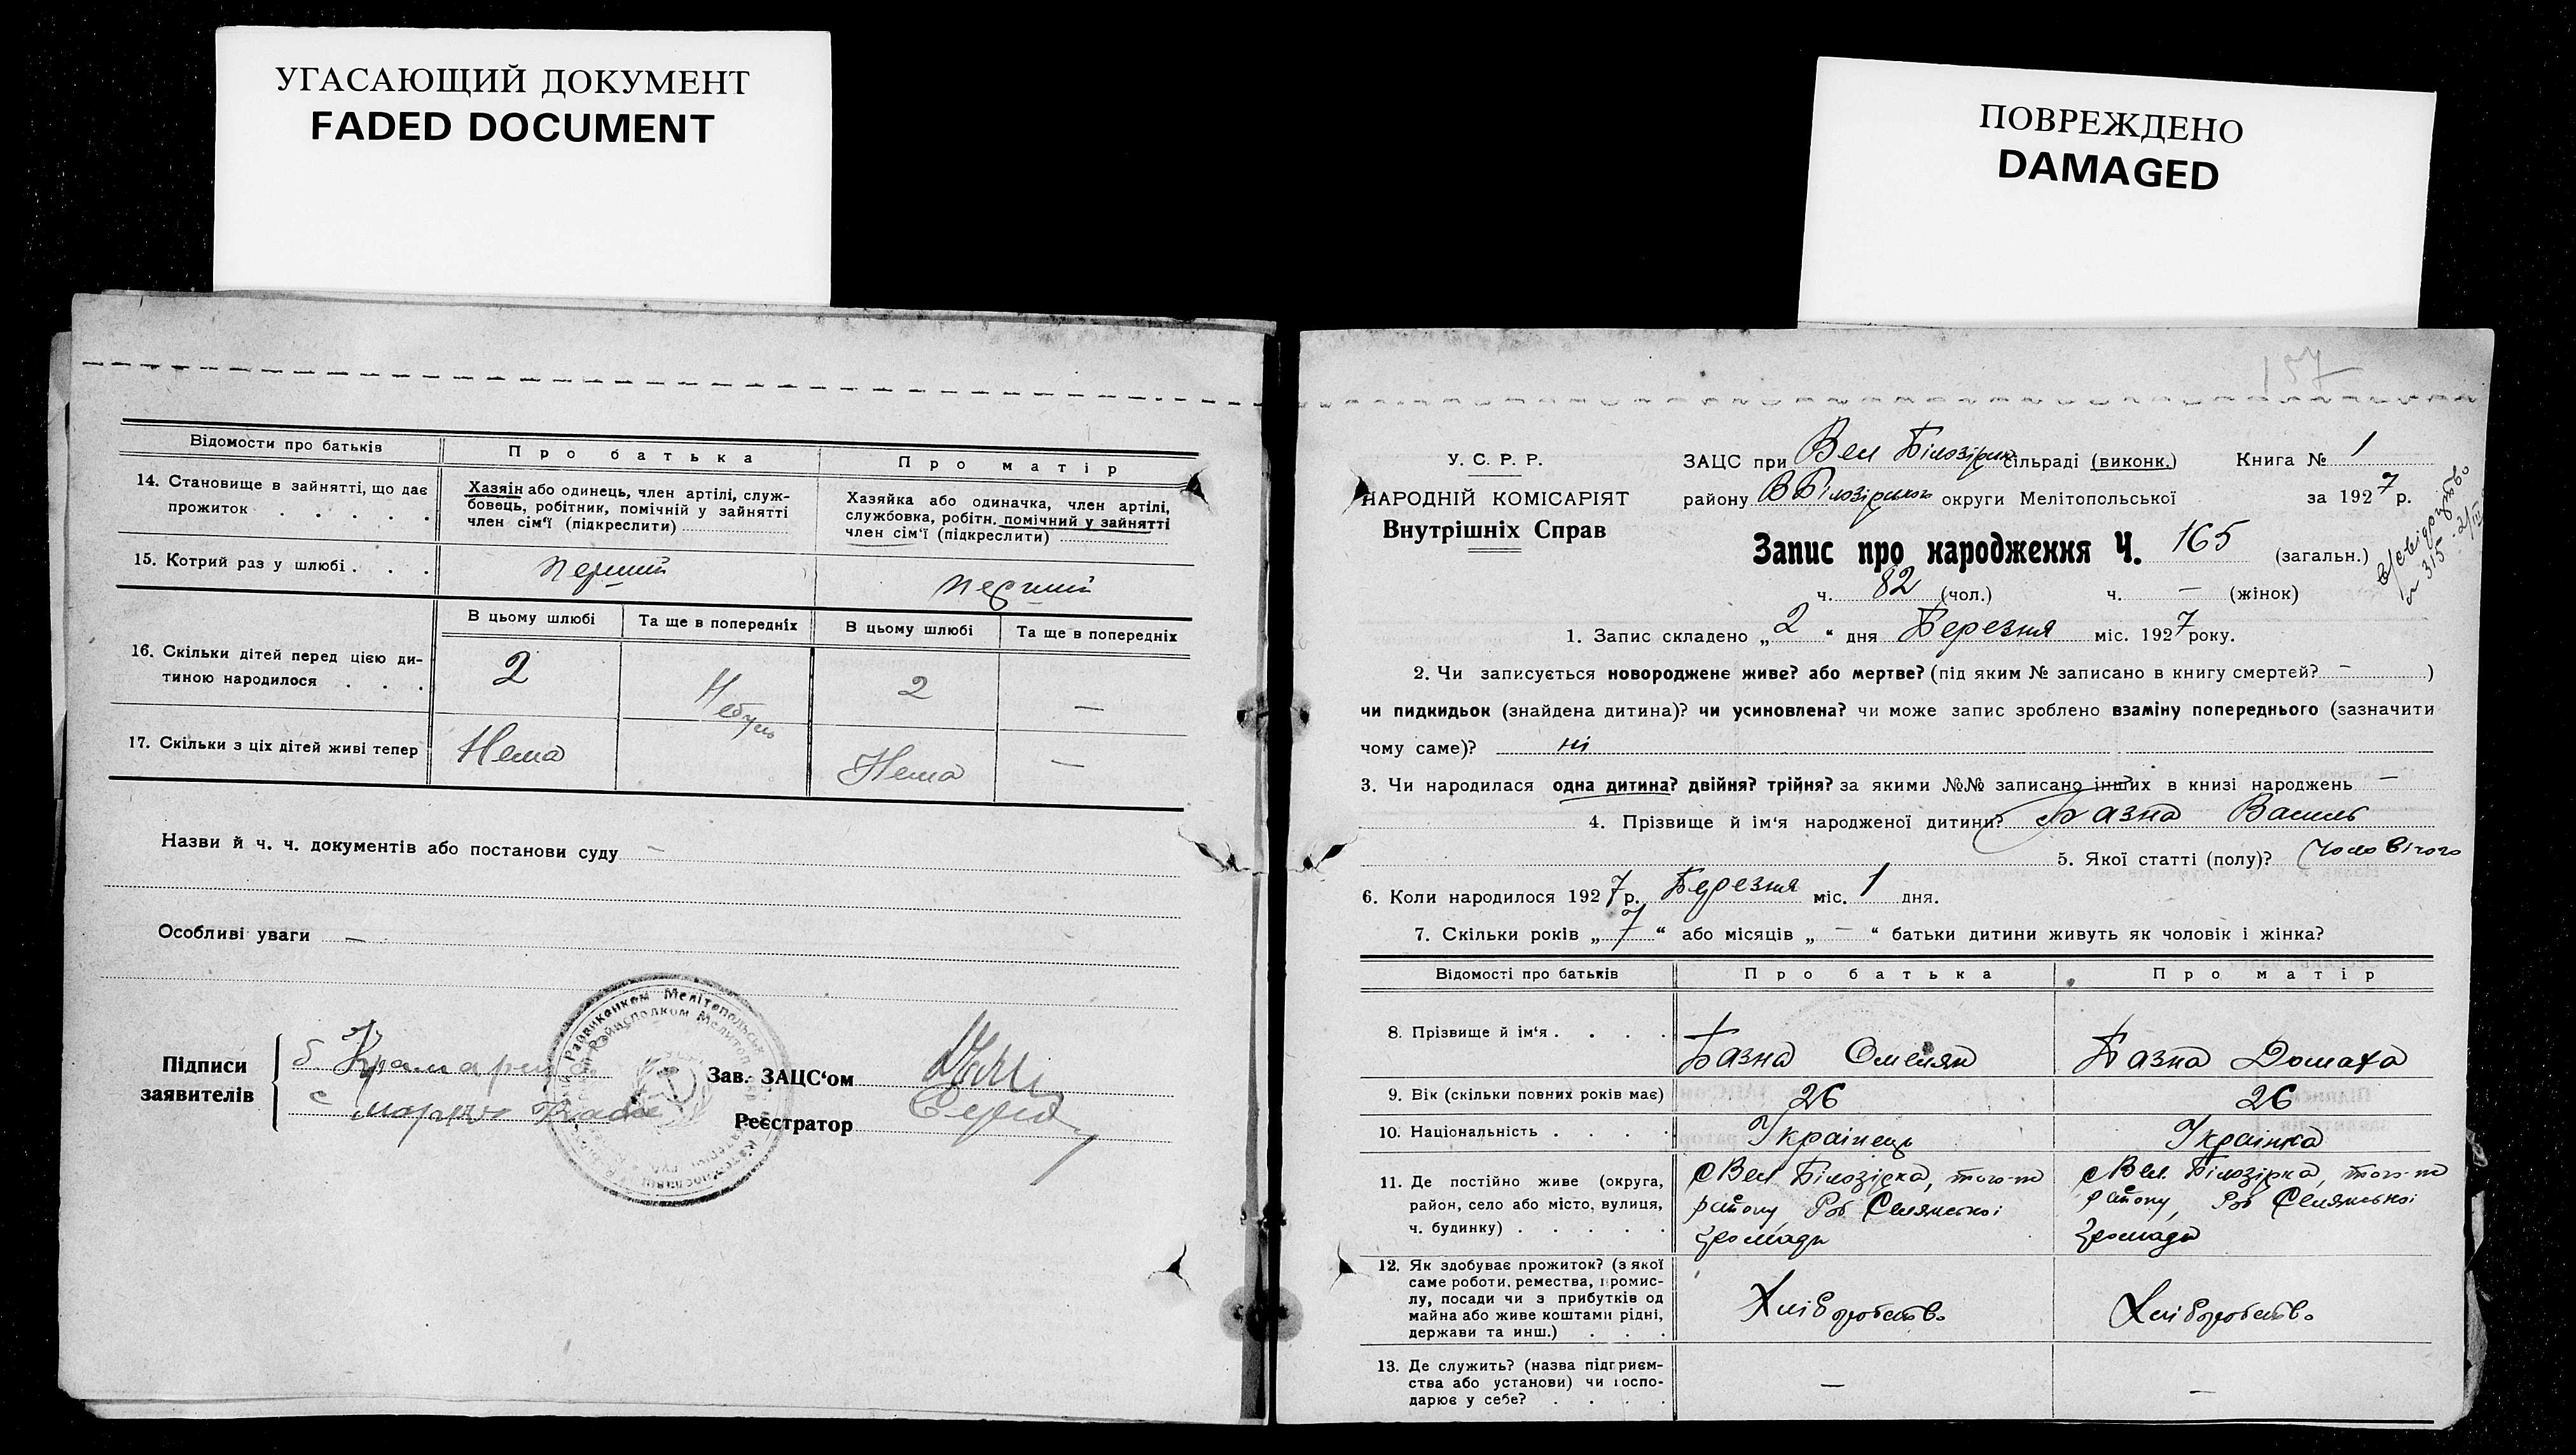 УГАСАЮЩИЙ ДОКУМЕНТ
FADED DOCUMENT
ПОВРЕЖДЕНО
DAMAGED
Відомости про батьків
Про батька
Про матір
14. Становище в зайнятті, що дає
прожиток . . . . .
Хазяін або одинець, член артілі, служ-
бовець, робітник, помічній у зайнятті
член сім'ї (підкреслити)
Хазяйка або одиначка, член артілі,
службовка, робітн. помічний у зайнятті
член сім'ї (підкреслити)
15. Котрий раз у шлюбі . . .
перший
перший
В цьому шлюбі
Та ще в попередніх
В цьому шлюбі
Та ще в попередніх
16. Скільки дітей перед цією ди-
тиною народилося . . .
2
Небуло
2
—
17. Скільки з ціх дітей живі тепер
Нема
Нема
—
Назви й ч. ч. документів або постанови суду —
Особливі уваги —
Підписи
заявителів
Зав. ЗАЦС'ом
Реєстратор
157
У. С. Р. Р.
НАРОДНІЙ КОМІСАРІЯТ
Внутрішніх Справ
ЗАЦС при Вел Білозірск. сільраді (виконк.) Книга № 1
району ВБілозірської округи Мелітопольської за 1927 р.
Запис про народження Ч. 165 (загальн.)
ч. 82 (чол.) ч. — (жінок)
№ 315
1. Запис складено „2“ дня Березня міс. 1927 року.
2. Чи записується новороджене живе? або мертве? (під яким № записано в книгу смертей? — )
чи пидкидьок (знайдена дитина)? чи усиновлена? чи може запис зроблено взаміну попереднього (зазначити
чому саме)? ні
3. Чи народилася одна дитина? двійня? трійня? за якими №№ записано інших в книзі народжень —
4. Прізвище й ім'я народженої дитини? Базна Василь
5. Якої статті (полу)? Чоловічого
6. Коли народилося 1927 р. Березня міс. 1 дня.
7. Скільки років „7“ або місяців „—“ батьки дитини живуть як чоловік і жінка?
Відомості про батьків
Про батька
Про матір
8. Прізвище й ім'я . . . .
Базна Омелян
Базна Домаха
9. Вік (скільки повних років має)
26
26
10. Національність . . . .
Українець
Українка
11. Де постійно живе (округа,
район, село або місто, вулиця,
ч. будинку) . . . . .
с Вел Білозірка, того-ж
району, Роб Селянської
громади
с Вел. Білозірка, того-ж
району, Роб Селянської
громади
12. Як здобуває прожиток? (з якої
саме роботи, ремества, промис-
лу, посади чи з прибутків од
майна або живе коштами рідні,
держави та инш.) . . .
Хліборобство
Хліборобство
13. Де служить? (назва підприєм-
ства або установи) чи госпо-
дарює у себе? . . . .
—
—